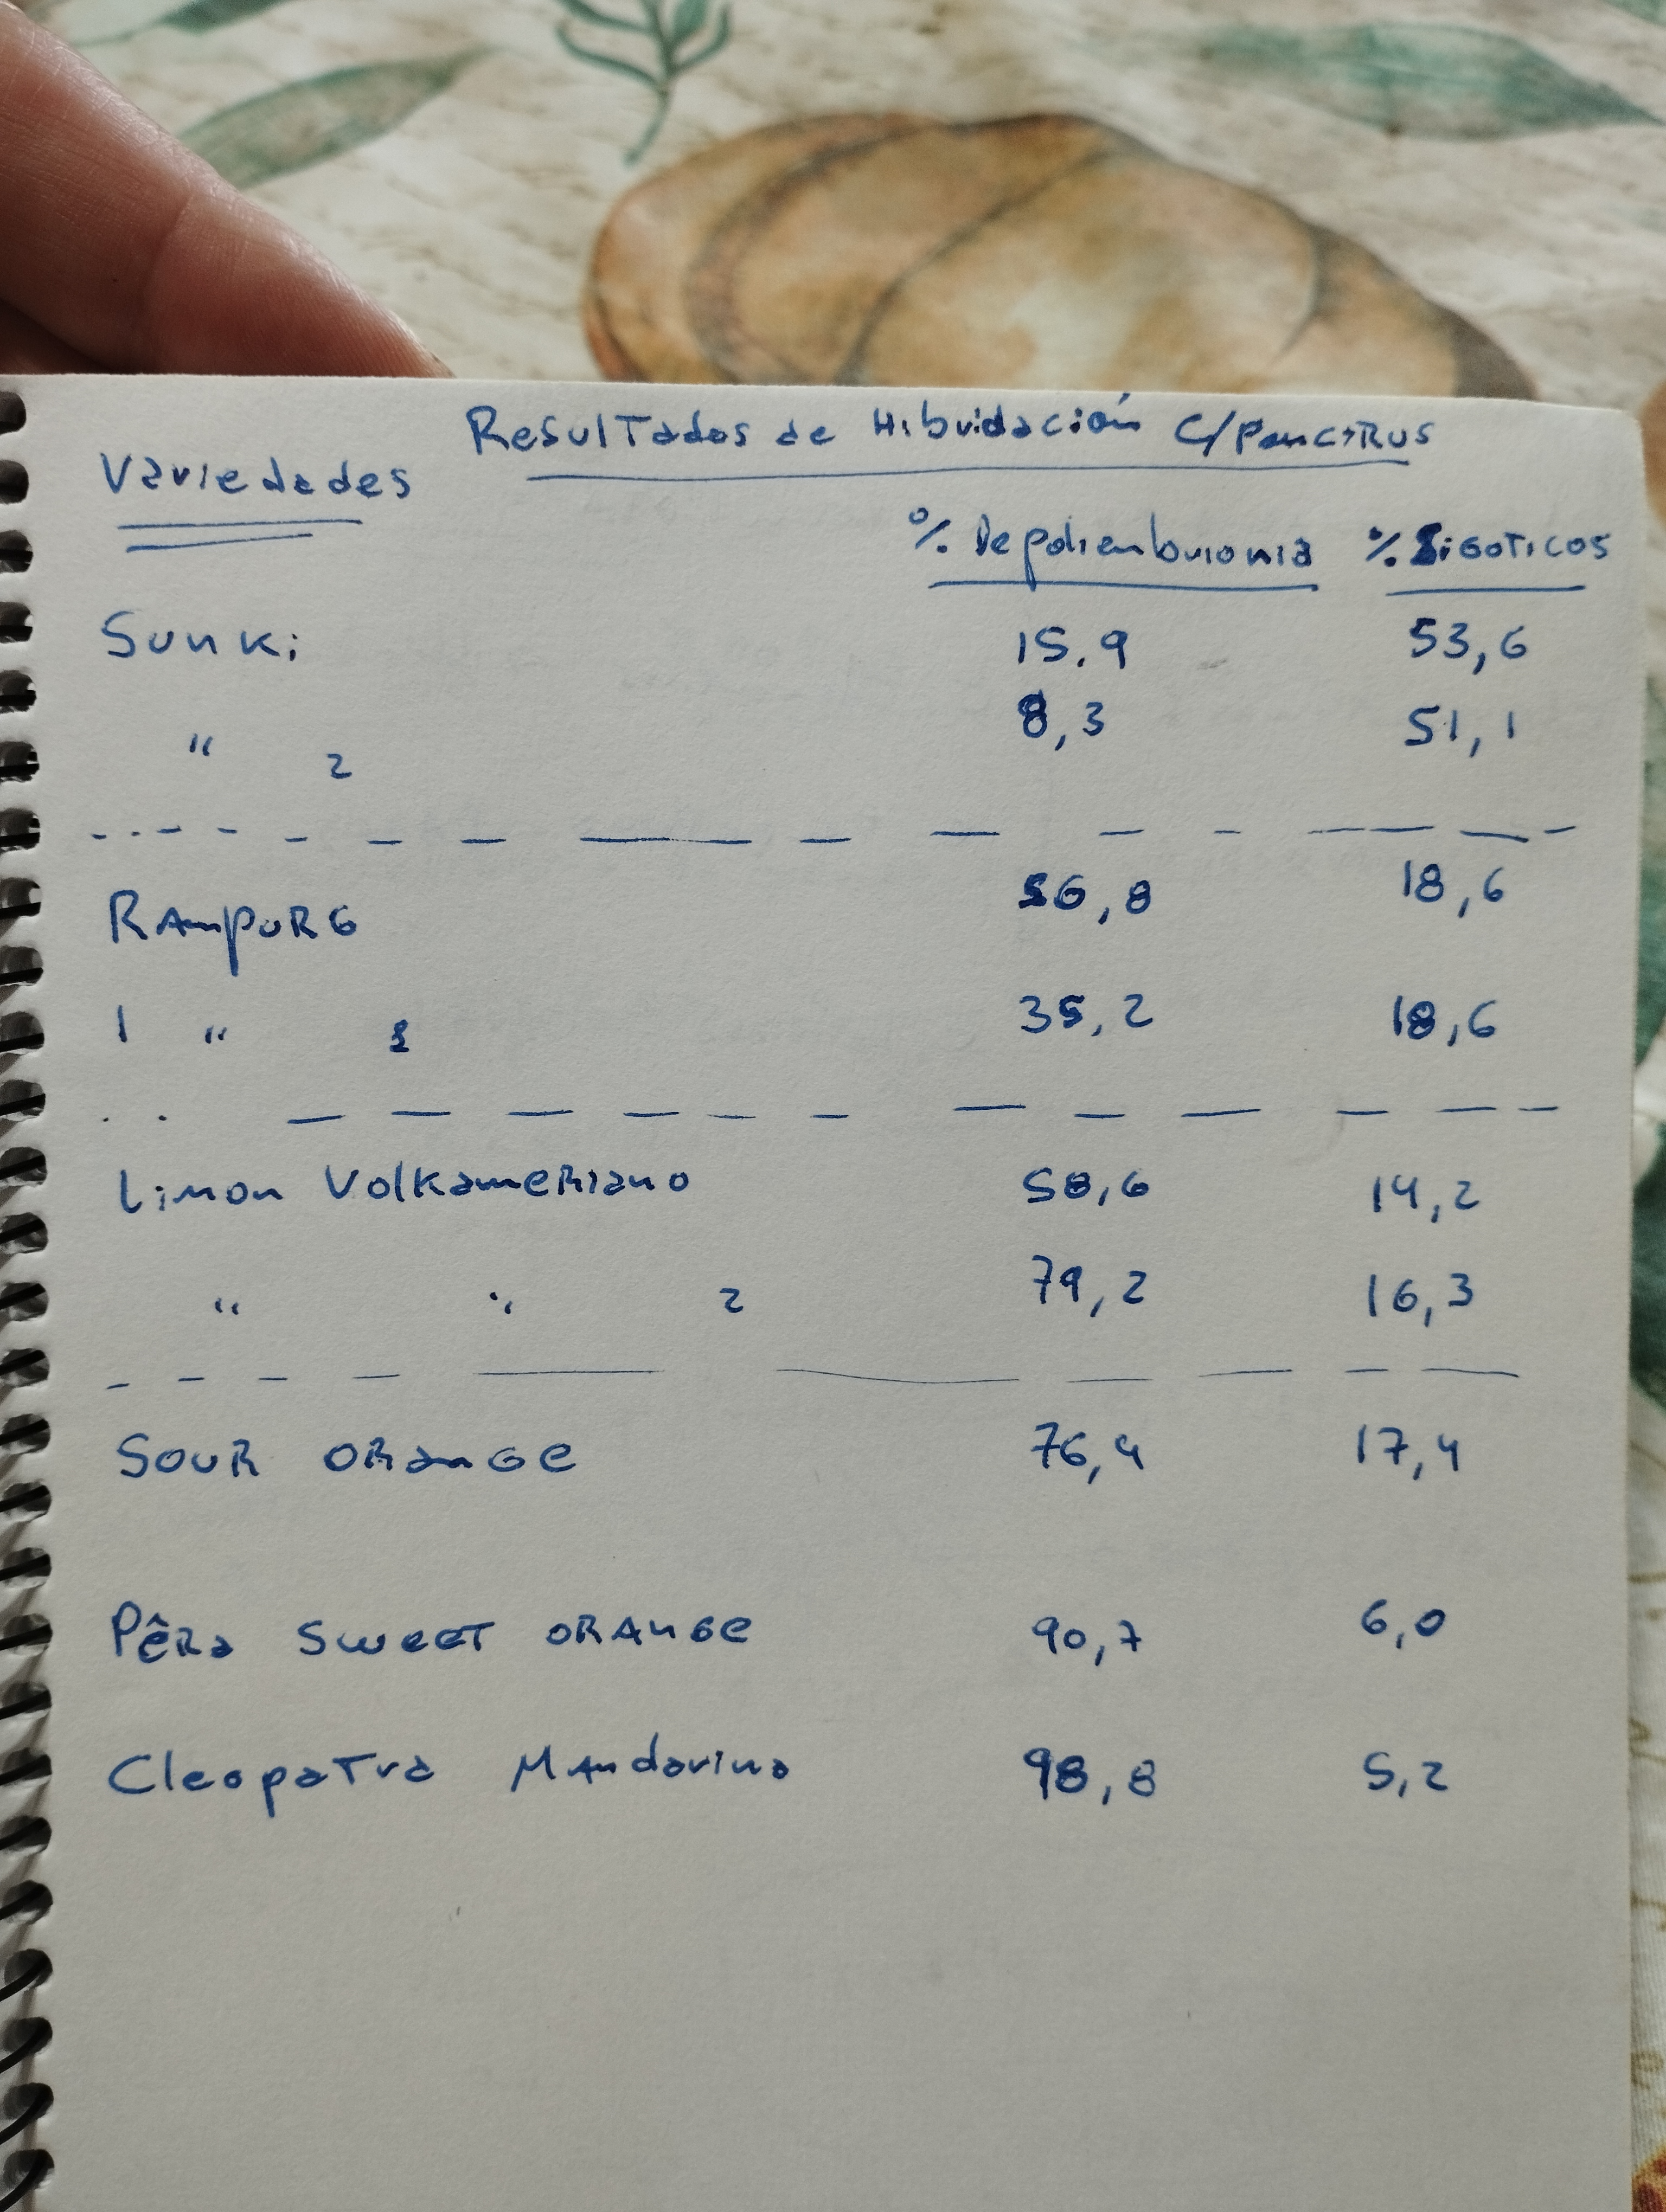 Resultados de Hibridación C/Poncirus
Variedades
% De poliembrionia % Zigoticos
Sunki 15.9 53,6
" 2 8,3 51,1
RAmpuRG 56,8 18,6
1 " 35,2 18,6
Limon Volkameriano 58,6 14,2
" " 2 79,2 16,3
Sour Orange 76,4 17,4
Pêra Sweet Orange 90,7 6,0
Cleopatra Mandarina 98,8 5,2